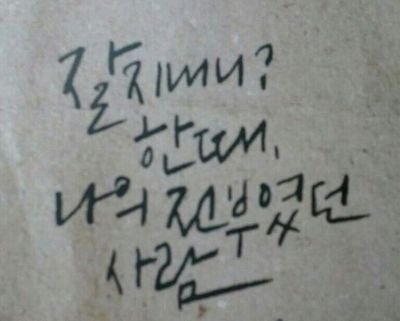 잘지내니?
한때,
나의 전부였던
사람